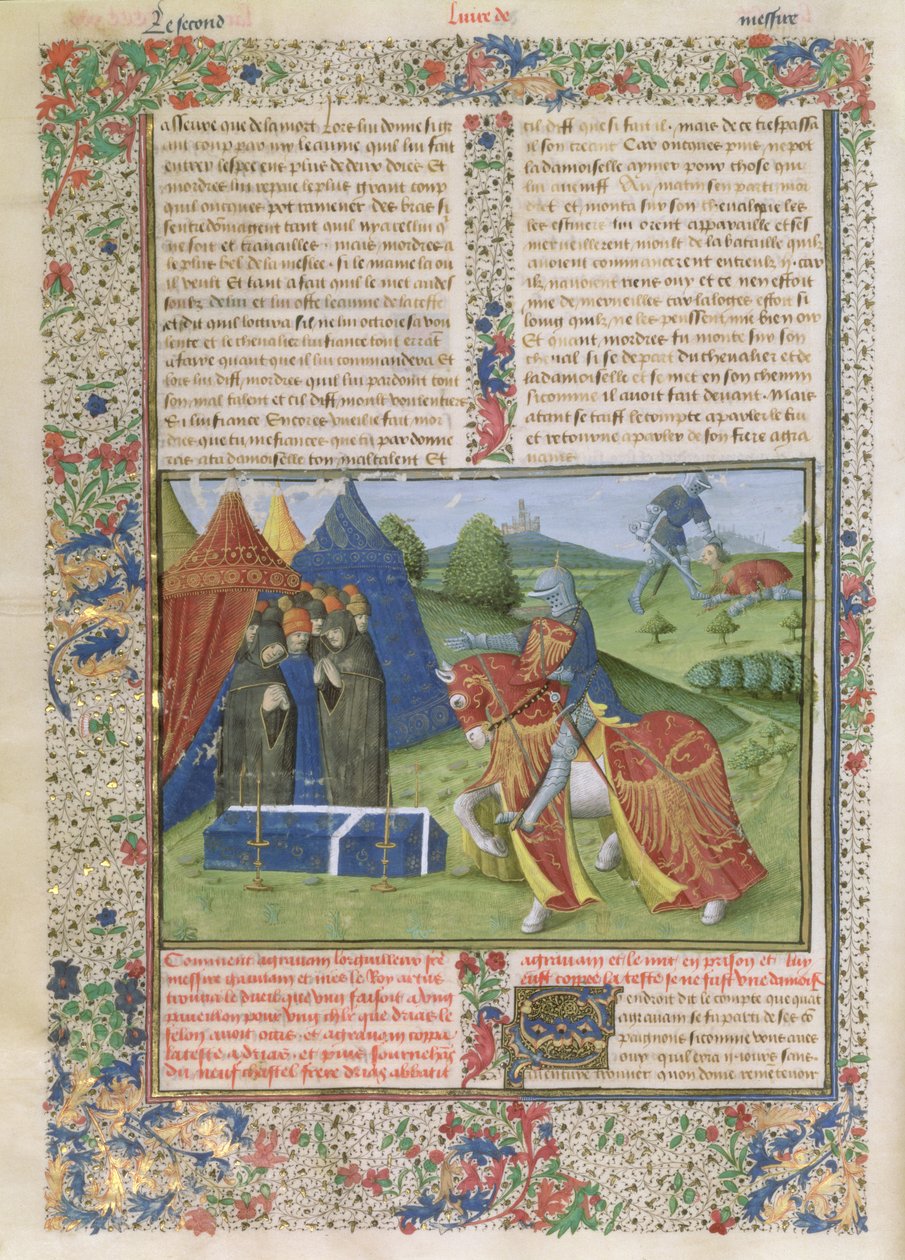 Le second
Livre de
messire
asseure que de la mort Lors lui donne si gr
coup par my le eaume quil lui fait
entrer lespee ens plus de deux dois Et
mordres lui repaie le plus grant coup
quil oncques pot ramener des bras si
sentredommagent tant quil ny a cellui qͥ
ne soit et travailles mais mordres a
le plus bel de la meslee. si le maine la ou
il veult Et tant a fait quil le met au des
soubz de lui et lui oste leaume de la teste
et dit quil loccira sil ne lui octroie sa vou
lente et le chevalier lui fiance tout errāt
a faire quant que il lui commandera Et
lors lui dist mordres quil lui pardoint tout
son mal talent et cil dist moult voulentiers
Si lui fiance Encores vueil ie fait mor
dres que tu me fiances que tu pardonne
ras a ta damoiselle ton maltalent Et
cil dist que si fait il. mais de ce trespassa
il son creant Car oncques puis ne pot
la damoiselle aymer pour chose que
lui avenist Au matin sen parti mor
dret et monta sur son cheval que les
les escuiers lui orent appareille et ses
merueillerent moult de la bataille quilz
auoient commancerent entreulx ij. car
ilz nauoient riens ouy et ce nen estoit
mie de merueilles car la loges estoit si
long quilz ne les peussent mie bien oir
Et quant mordres fu monte sur son
cheual si se depart du cheualier et de
la damoiselle et se met en son chemin
si comme il auoit fait deuant. Mais
atant se taist le compte a parler de lui
et retourne a parler de son frere agra
uains
Comment agravain lorguilleux frē
messire gauuain et nies le Roy artus
trouua le dueil que lun faisoit a ung
paueillon pour ung chlr̄ que drias le
felon auoit occis et agrauain coppa
la teste a drias et puis sournehās
du neuf chastel frere drias abbatit
agrauain et le mist en prison et luy
eust coppee la teste se ne fust une damoiselle
endroit dit le compte que quāt
agrauain se fu parti de ses cō
paignons si comme vous aues
ouy quil erra ij. iours sans
auenture trouuer quon doiue ramenteuoir